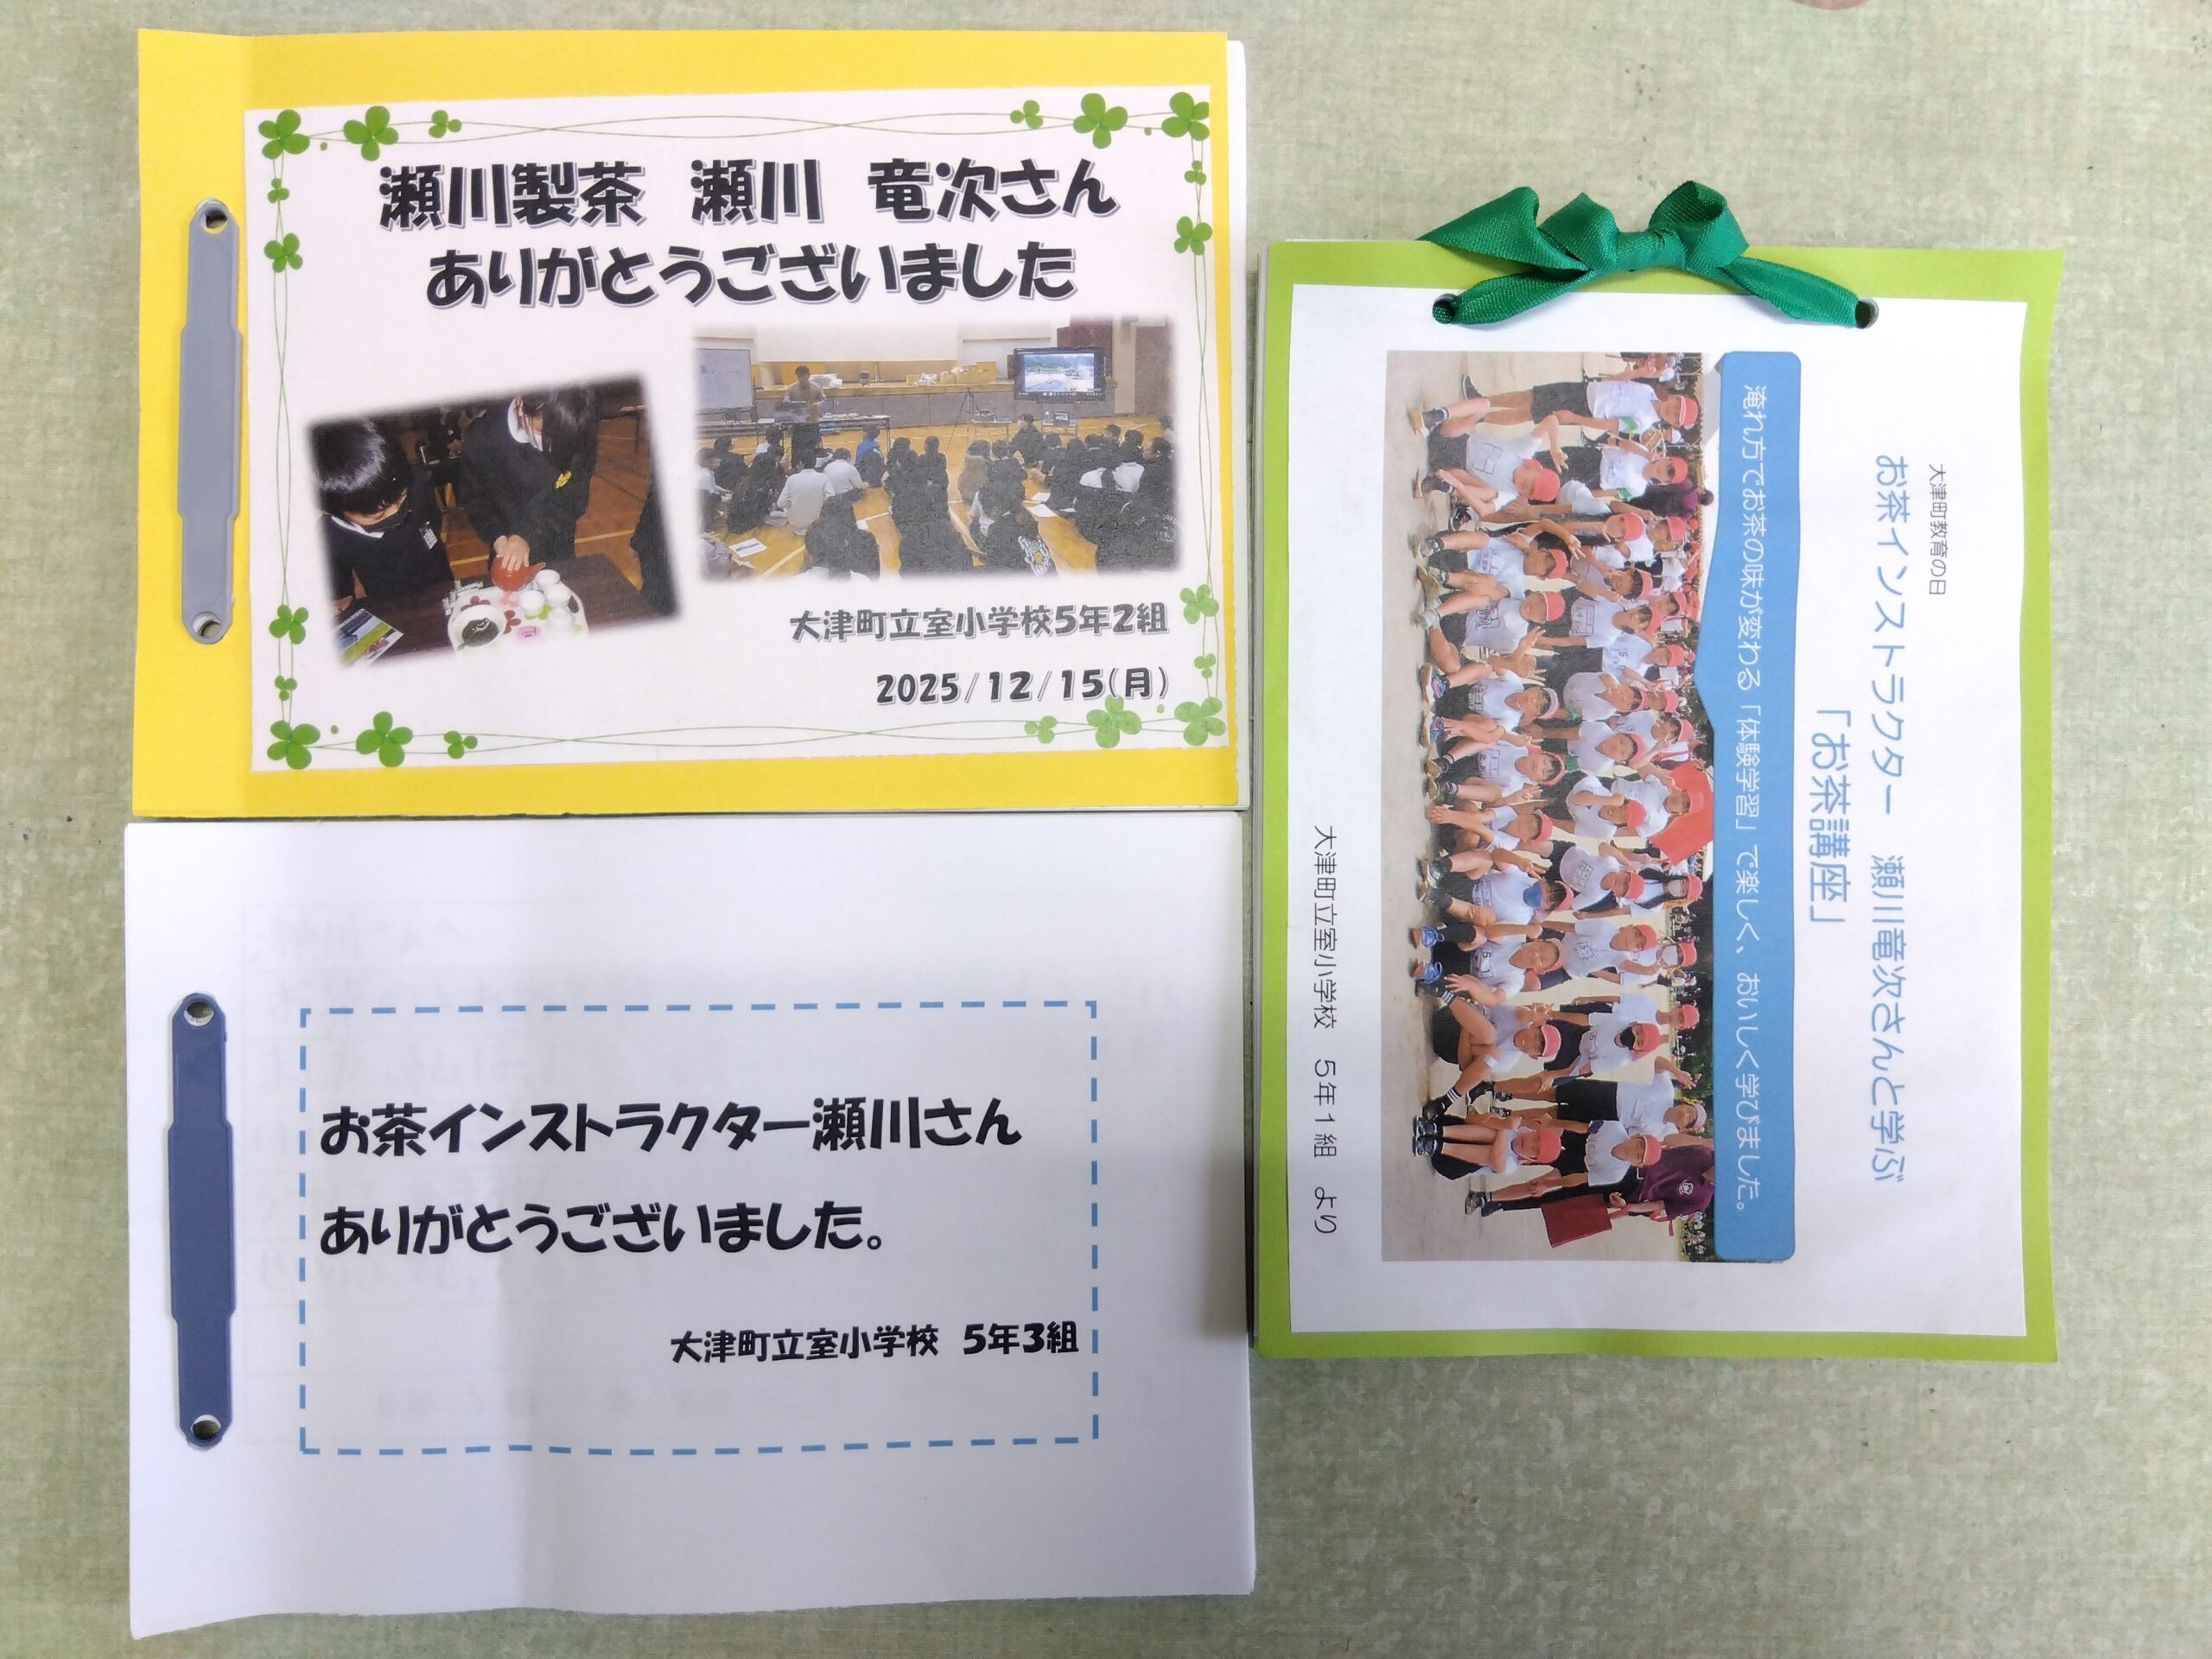 瀬川製茶 瀬川 竜次さん
ありがとうございました
大津町立室小学校5年2組
2025/12/15(月)
お茶インストラクター瀬川さん
ありがとうございました。
大津町立室小学校 5年3組
大津町教育の日
お茶インストラクター 瀬川竜次さんと学ぶ
「お茶講座」
淹れ方でお茶の味が変わる「体験学習」で楽しく、おいしく学びました。
大津町立室小学校 5年1組 より